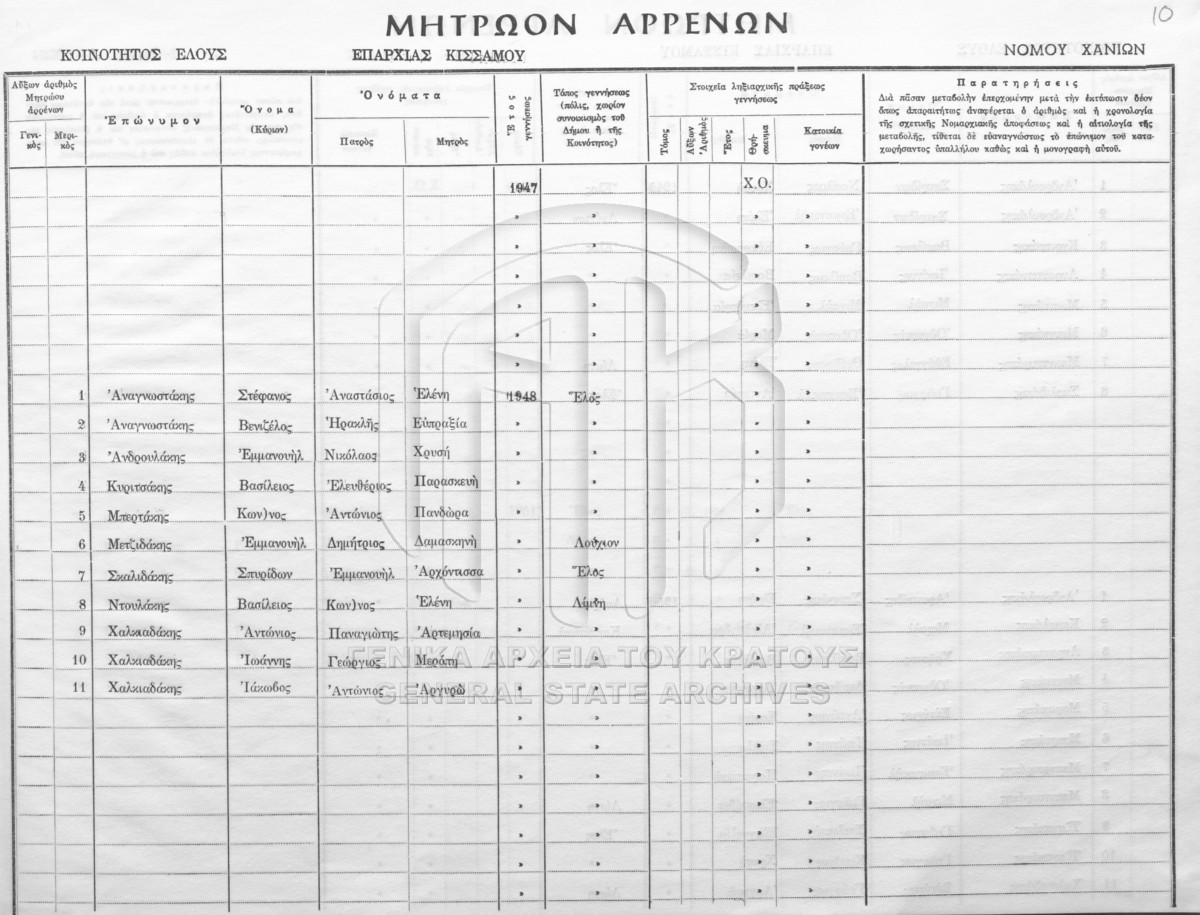 10
ΜΗΤΡΩΟΝ ΑΡΡΕΝΩΝ
ΚΟΙΝΟΤΗΤΟΣ ΕΛΟΥΣ ΕΠΑΡΧΙΑΣ ΚΙΣΣΑΜΟΥ ΝΟΜΟΥ ΧΑΝΙΩΝ
Αὔξων ἀριθμὸς Μητρώου ἀρρένων
Γενικὸς Μερικὸς
Ἐπώνυμον
Ὄνομα (Κύριον)
Ὀνόματα
Πατρὸς Μητρὸς
Ἔτος γεννήσεως
Τόπος γεννήσεως (πόλις, χωρίον συνοικισμὸς τοῦ Δήμου ἢ τῆς Κοινότητος)
Στοιχεῖα ληξιαρχικῆς πράξεως γεννήσεως
Τόμος Αὔξων Ἀριθμὸς Ἔτος Θρήσκευμα Κατοικία γονέων
Παρατηρήσεις
Διὰ πᾶσαν μεταβολὴν ἐπερχομένην μετὰ τὴν ἐκτύπωσιν δέον
ὅπως ἀπαραιτήτως ἀναφέρεται ὁ ἀριθμὸς καὶ ἡ χρονολογία
τῆς σχετικῆς Νομαρχιακῆς ἀποφάσεως καὶ ἡ αἰτιολογία τῆς
μεταβολῆς, τίθεται δὲ εὐαναγνώστως τὸ ἐπώνυμον τοῦ κατα-
χωρήσαντος ὑπαλλήλου καθὼς καὶ ἡ μονογραφὴ αὐτοῦ.
1947 Χ.Ο.
» » » »
» » » »
» » » »
» » » »
» » » »
» » » »
1 Ἀναγνωστάκης Στέφανος Ἀναστάσιος Ἑλένη 1948 Ἕλος » »
2 Ἀναγνωστάκης Βενιζέλος Ἡρακλῆς Εὐπραξία » » » »
3 Ἀνδρουλάκης Ἐμμανουὴλ Νικόλαος Χρυσῆ » » » »
4 Κυριτσάκης Βασίλειος Ἐλευθέριος Παρασκευὴ » » » »
5 Μπερτάκης Κων)νος Ἀντώνιος Πανδώρα » » » »
6 Μετζιδάκης Ἐμμανουὴλ Δημήτριος Δαμασκηνὴ » Λούχιον » »
7 Σκαλιδάκης Σπυρίδων Ἐμμανουὴλ Ἀρχόντισσα » Ἕλος » »
8 Ντουλάκης Βασίλειος Κων)νος Ἑλένη » Λίμνη » »
9 Χαλκιαδάκης Ἀντώνιος Παναγιώτης Ἀρτεμησία » » » »
10 Χαλκιαδάκης Ἰωάννης Γεώργιος Μερόπη » » » »
11 Χαλκιαδάκης Ἰάκωβος Ἀντώνιος Ἀργυρῶ » » » »
» » » »
» » » »
» » » »
» » » »
» » » »
» » » »
» » » »
ΓΕΝΙΚΑ ΑΡΧΕΙΑ ΤΟΥ ΚΡΑΤΟΥΣ
GENERAL STATE ARCHIVES